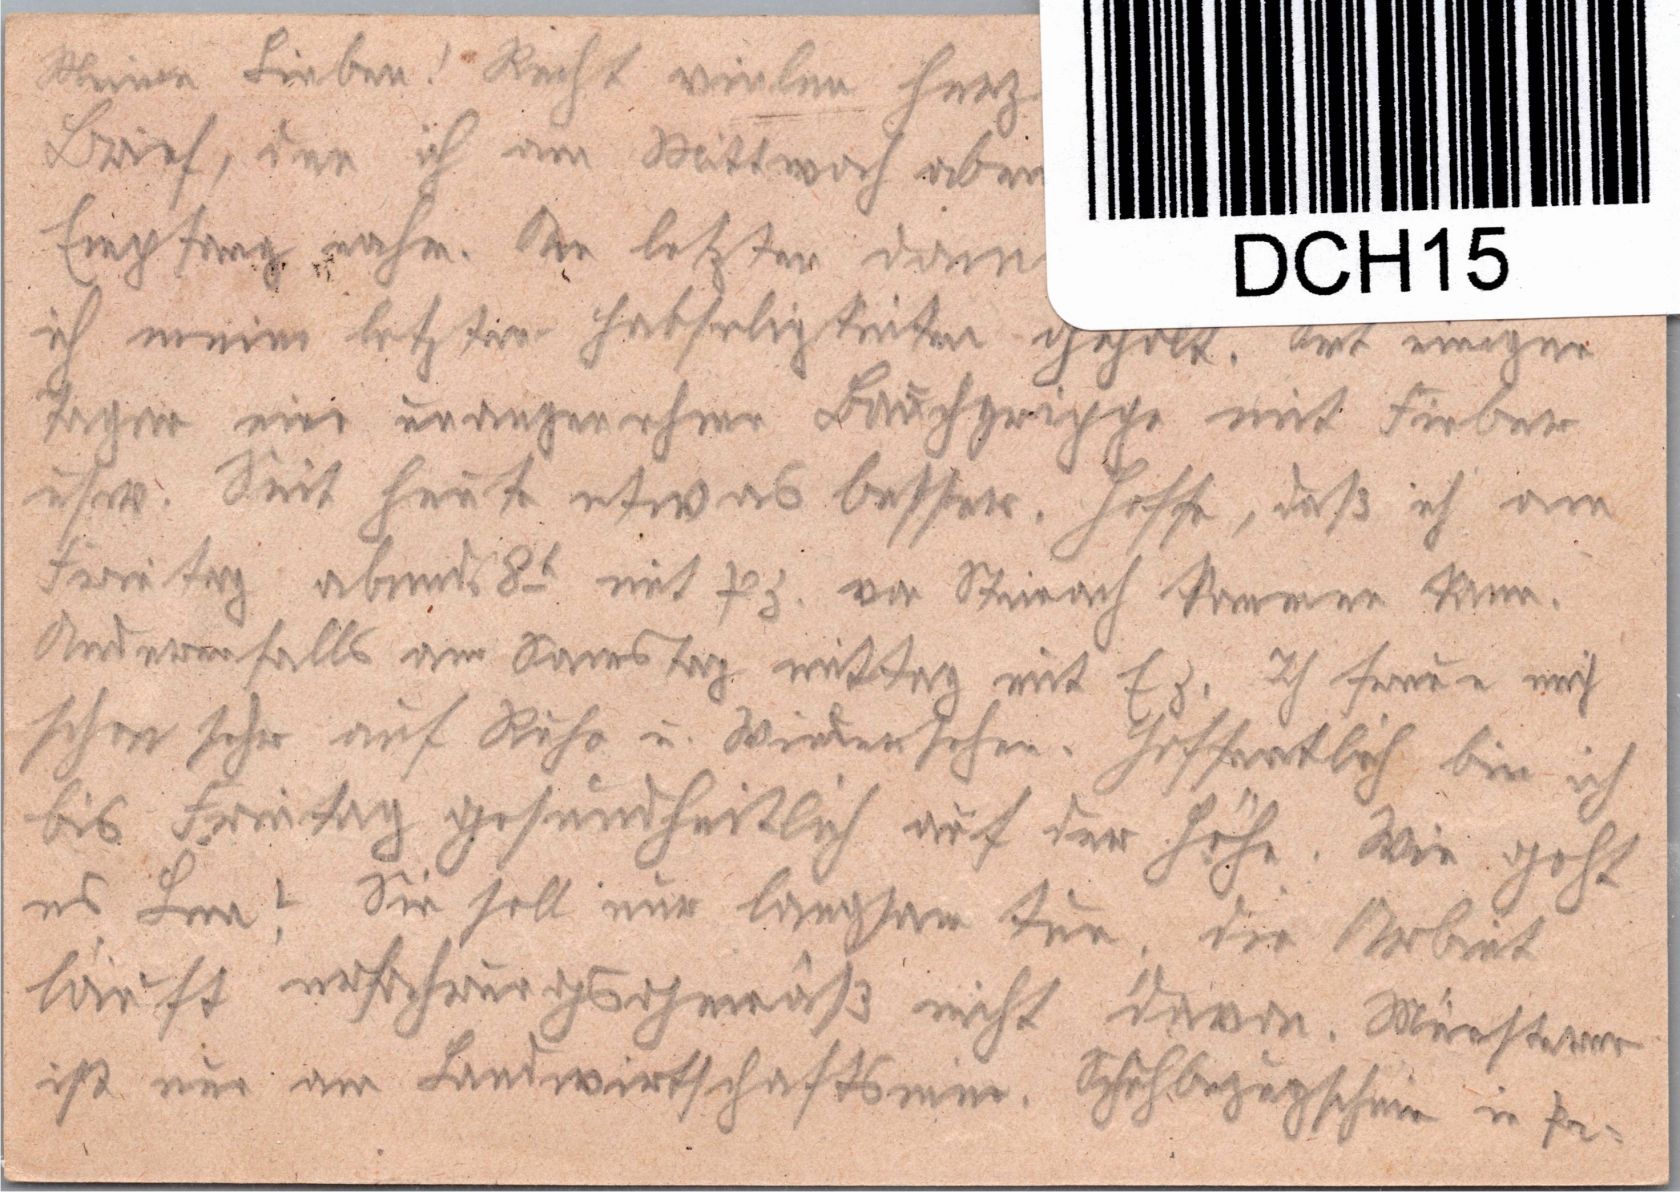 Meine Lieben! Recht vielen herz
Brief, den ich am Mittwoch aben
Empfang nahm. An letzter dann
ich meine letzten Habseligkeiten geholt. Seit einigen
Tagen eine unangenehme Bauchgrippe mit Fieber
usw. Seit heute etwas besser. Hoffe, daß ich am
Freitag abends 8h mit Pz. von Steinach kommen kann.
Anderenfalls am Samstag mittag mit Ez. Ich freue mich
schon sehr auf Ruhe u. Wiedersehen. Hoffentlich bin ich
bis Freitag gesundheitlich auf der Höhe. Wie geht
es Lena? Sie soll nur langsam tun, die Arbeit
läuft erfahrungsgemäß nicht davon. Münsterer
ist nun am Landwirtschaftsmin. Schuhbezugschein in
DCH15